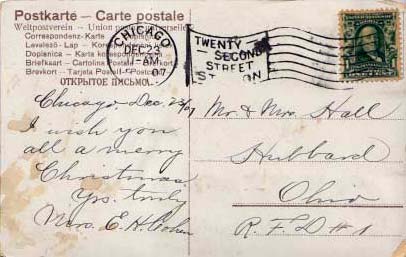 Postkarte – Carte postale
Weltpostverein - Union postale universelle
Correspondenz-Karte
Levelező-Lap
Dopisnica - Karta korespondencyjna
Briefkaart - Cartolina Postale
Brevkort - Tarjeta Postal
ОТКРЫТОЕ ПИСЬМО
CHICAGO
DEC 23
-AM
07
TWENTY
SECOND
STREET
STATION
Chicago, Dec 23/07
I wish you
all a merry
Christmas
Yrs. truly
Mrs. E. H.
Mr. & Mrs. Hall
Hubbard
Ohio
R. F. D # 1